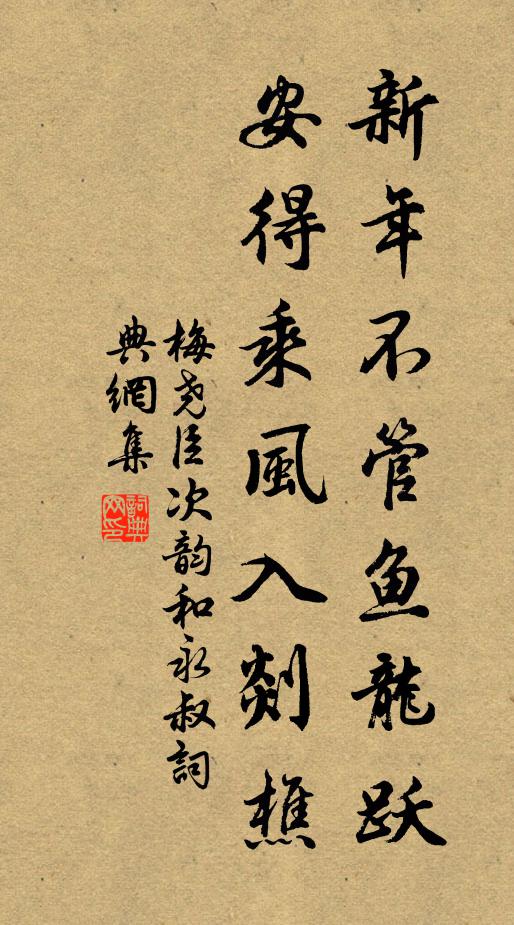 新年不管鱼龍跃
安得乘風入剡樵
梅尧臣次韵和永叔詞
典網集
詞典
网印